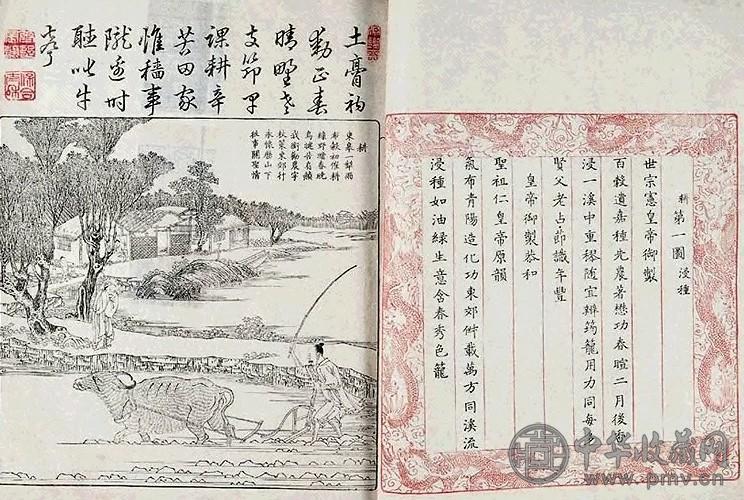 耕第一圖 浸種
世宗憲皇帝御製
百穀遺嘉種先農著懋功春暄二月後香
浸一溪中重穋隨宜辨筠籠用力同每多
賢父老占節識年豐
皇帝御製恭和
聖祖仁皇帝原韻
氣布青陽造化功東郊俶載萬方同溪流
浸種如油綠生意含春秀色籠
土膏初
動正春
晴野老
支筇早
課耕辛
苦田家
惟穡事
隴邊時
聽叱牛
聲
耕
東皋一犁雨
布穀初催耕
綠野暗春曉
烏犍苦肩赬
我銜勸農字
杖策東郊行
永懷歷山下
事關聖情
中华收藏网